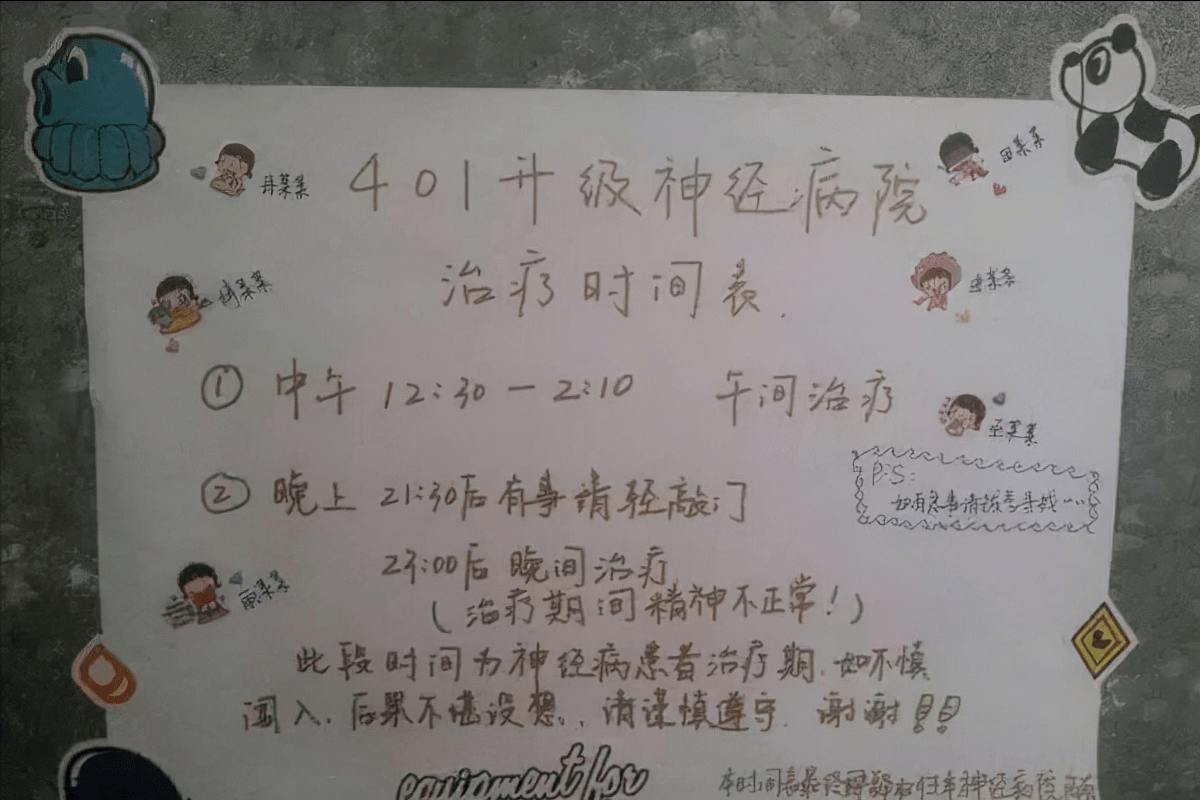 401升级神经病院
治疗时间表.
① 中午 12:30-2:10 午间治疗
② 晚上 21:30后有事请轻敲门
23:00后 晚间治疗
(治疗期间精神不正常!)
此段时间为神经病患者治疗期.如不慎
闯入.后果不堪设想.,请谨慎遵守.谢谢!!
某某
某某
某某
某某
某某
某某
P:S:
如有急事请
equipment for
本时间表最终解释权归神经病院所有